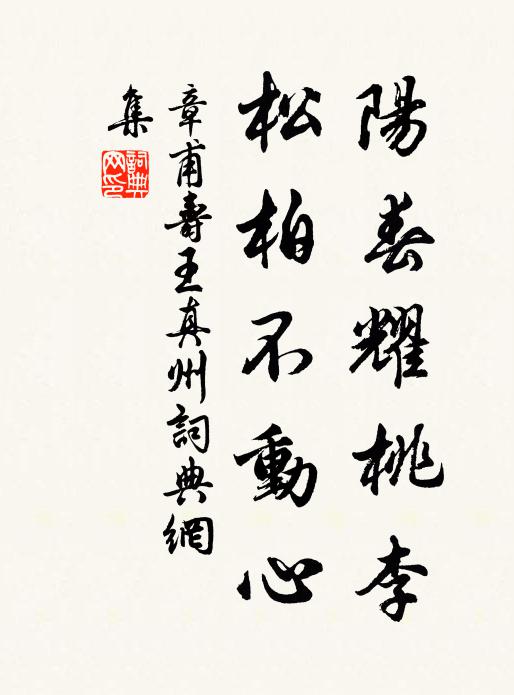 陽春耀桃李
松柏不動心
章甫壽王真州詞典網
集
詞典
网印